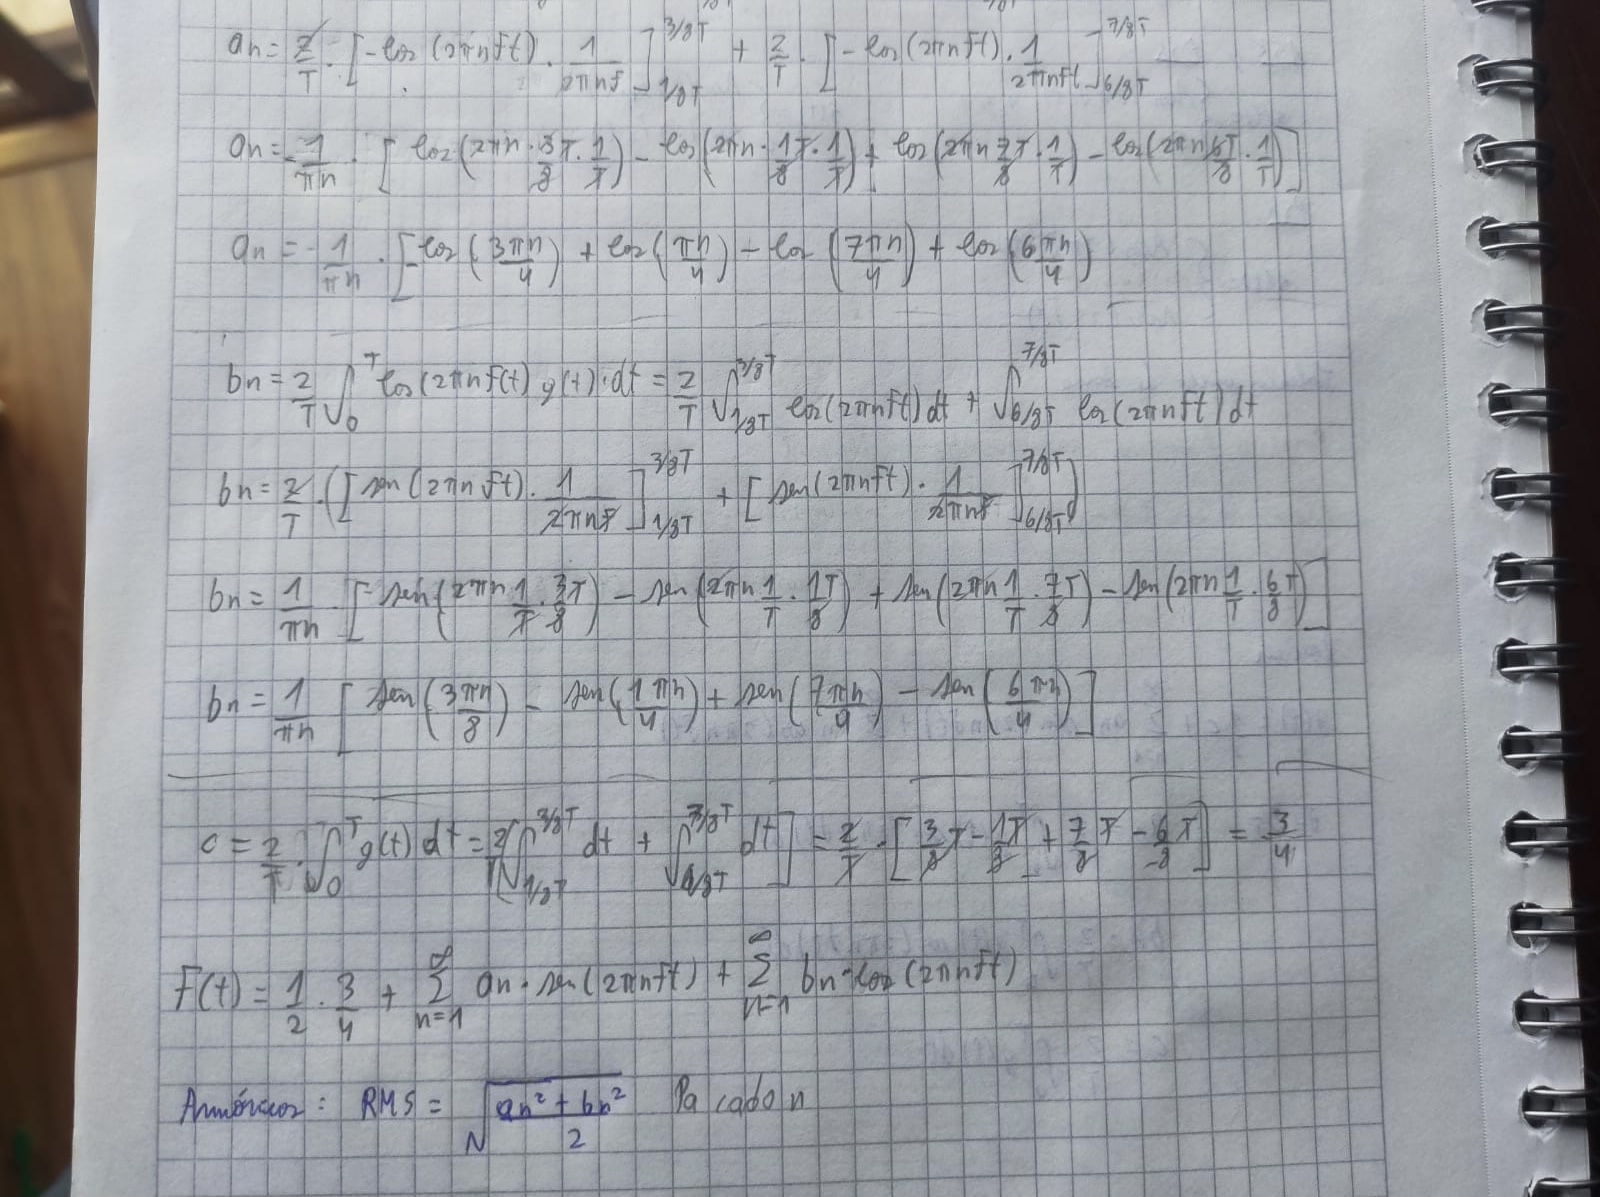 an = 2/T · [-cos(2πnft) · 1/2πnf]_{1/8T}^{3/8T} + 2/T · [-cos(2πnft) · 1/2πnft]_{6/8T}^{7/8T}
an = -1/πn · [cos(2πn · 3/8 T · 1/T) - cos(2πn · 1/8 T · 1/T) + cos(2πn 7T/8 · 1/T) - cos(2πn 6T/8 · 1/T)]
an = -1/πn · [-cos(3πn/4) + cos(πn/4) - cos(7πn/4) + cos(6πn/4)
bn = 2/T ∫_0^T cos(2πnf(t) g(t) · dt = 2/T ∫_{1/8T}^{3/8T} cos(2πnft) dt + ∫_{6/8T}^{7/8T} cos(2πnft) dt
bn = 2/T · ([sen(2πnft) · 1/2πnf]_{1/8T}^{3/8T} + [sen(2πnft) · 1/2πnf]_{6/8T}^{7/8T})
bn = 1/πn [sen(2πn 1/T · 3T/8) - sen(2πn 1/T · 1T/8) + sen(2πn 1/T · 7T/8) - sen(2πn 1/T · 6T/8)]
bn = 1/πn [sen(3πn/8) - sen(1πn/4) + sen(7πn/4) - sen(6πn/4)]
c = 2/T · ∫_0^T g(t) dt = 2/T [∫_{1/8T}^{3/8T} dt + ∫_{6/8T}^{7/8T} dt] = 2/T · [3/8 T - 1T/8 + 7/8 T - 6/8 T] = 3/4
F(t) = 1/2 · 3/4 + ∑_{n=1}^∞ an · sen(2πnft) + ∑_{n=1}^∞ bn · cos(2πnft)
Armónicos: RMS = √(an² + bn²/2) Pa cada n